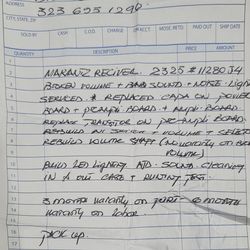 ADDRESS
323 695 1296
CITY, STATE, ZIP
SOLD BY CASH C.O.D. CHARGE ON ACCT. MDSE. RETD. PAID OUT SHIP DATE
QUANTITY DESCRIPTION PRICE AMOUNT
1
2 MARANTZ RECIVER. 2325 # 11280 J4
3 BROKEN VOLUME + BAD SOUND + NOISE + LIGHT
4 SERVICED & REPLACED CAPS ON POWER
5 BOARD + PREAMP BOARD + AMP. BOARD
6 REPLACE TRANSISTOR ON PRE-AMPLI BOARD.
7 REBUILD ALL SWITCH + VOLUME + SELECT
8 REBUILD VOLUME SHAFT (NO WARANTY ON
9 VOLUME)
10 BUILD LED LIGHTING. SOUND. CLEANING
11 IN & OUT CASE & RUNING TEST.
12
13 3 MONTH WARANTY ON PART 6 MONTH
14 WARANTY ON LABOR.
15
16 PICK UP.
17